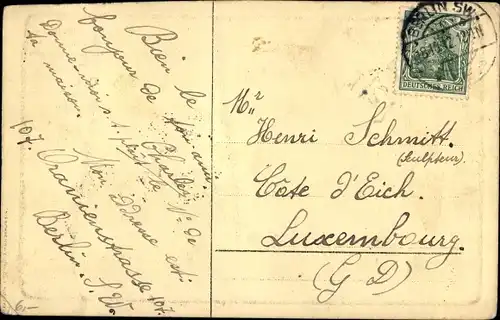 Bien le
bonjour de ton ami
Charles.
Donne-moi s.t. le № de
ta maison.
Mon adresse est:
107. Oranienstrasse 107.
Berlin. S.W.
BERLIN SW
DEUTSCHES REICH
Mr
Henri Schmitt.
(Sculpteur).
Côte d'Eich.
Luxembourg.
(G D)
6,-